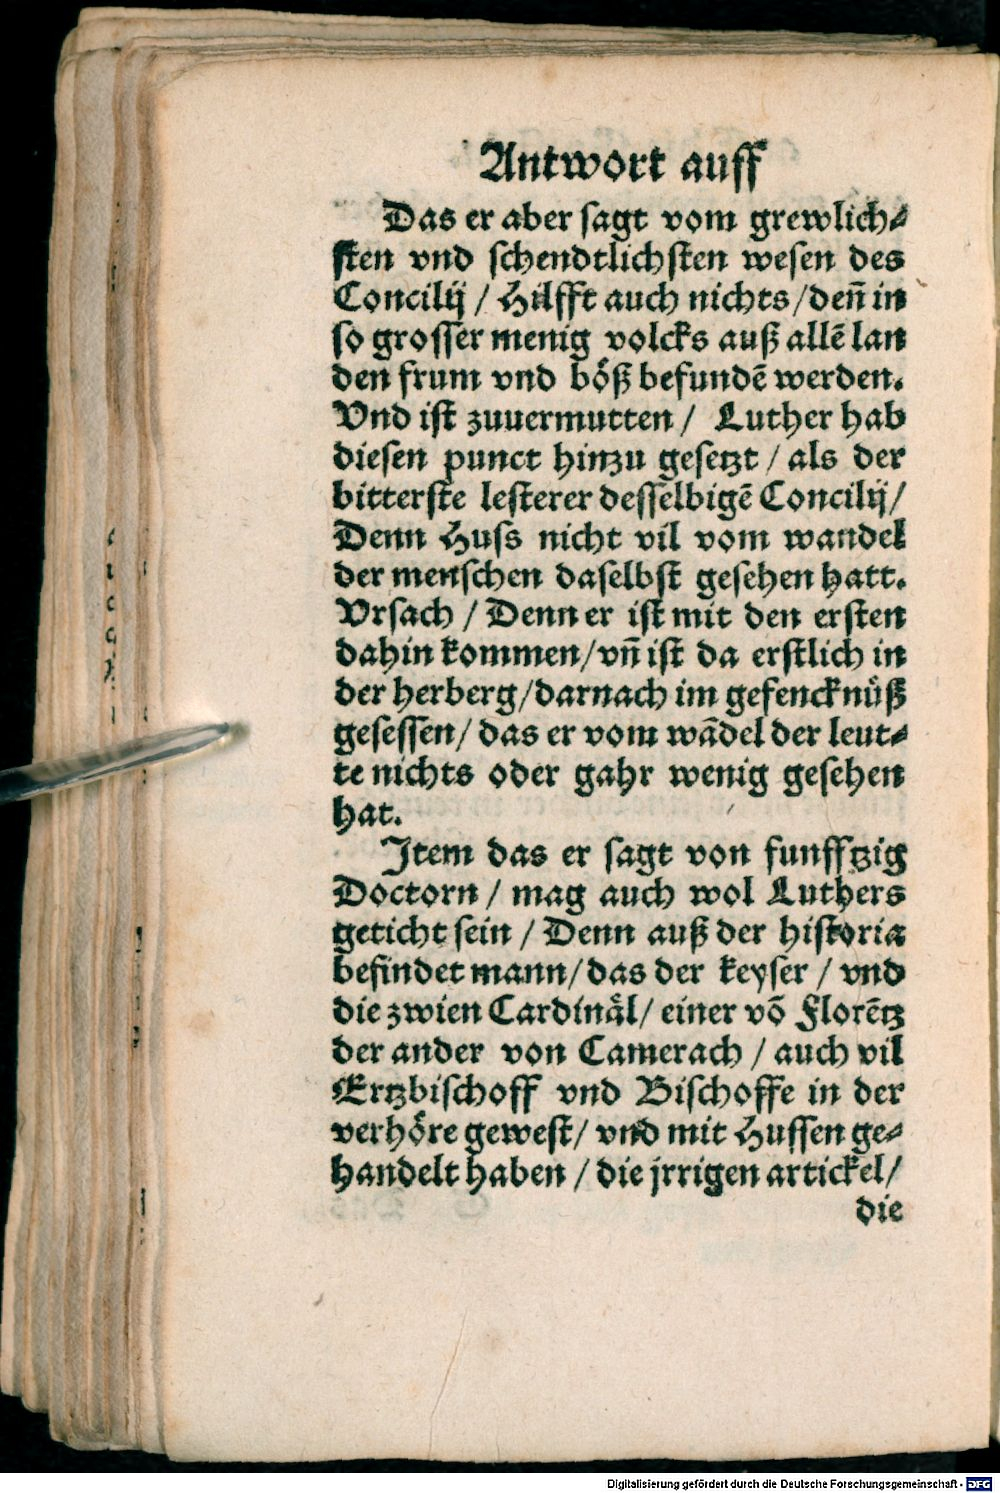 Antwort auff
Das er aber sagt vom grewlich⸗
sten vnd schendtlichsten wesen des
Concilij / Hilfft auch nichts / den̄ in
so grosser menig volcks auß allē lan
den frum vnd bo͏̈ß befundē werden.
Vnd ist zuuermutten / Luther hab
diesen punct hinzu gesetzt / als der
bitterste lesterer desselbigē Concilij /
Denn Huss nicht vil vom wandel
der menschen daselbst gesehen hatt.
Vrsach / Denn er ist mit den ersten
dahin kommen / vn̄ ist da erstlich in
der herberg / darnach im gefencknüß
gesessen / das er vom wādel der leut⸗
te nichts oder gahr wenig gesehen
hat.
Item das er sagt von funfftzig
Doctorn / mag auch wol Luthers
geticht sein / Denn auß der historia
befindet mann / das der keyser / vnd
die zwien Cardinäl / einer vō Florētz
der ander von Camerach / auch vil
Ertzbischoff vnd Bischoffe in der
verhöre gewest / vnd mit Hussen ge⸗
handelt haben / die jrrigen artickel /
die
Digitalisierung gefördert durch die Deutsche Forschungsgemeinschaft - DFG